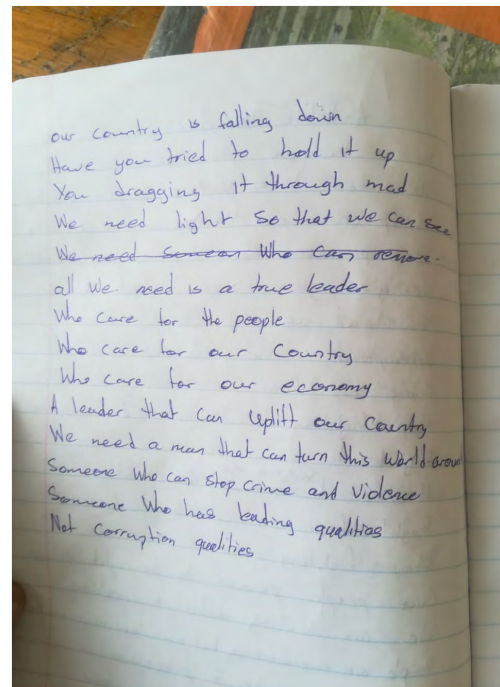 our country is falling down
Have you tried to hold it up
You dragging it through mad
We need light so that we can see
We need Who can
all we need is a true leader
Who care for the people
Who care for our Country
Who care for our economy
A leader that can uplift our Country
We need a man that can turn this World aroun
Someone Who can stop crime and violence
Someone Who has leading qualities
Not corruption qualities